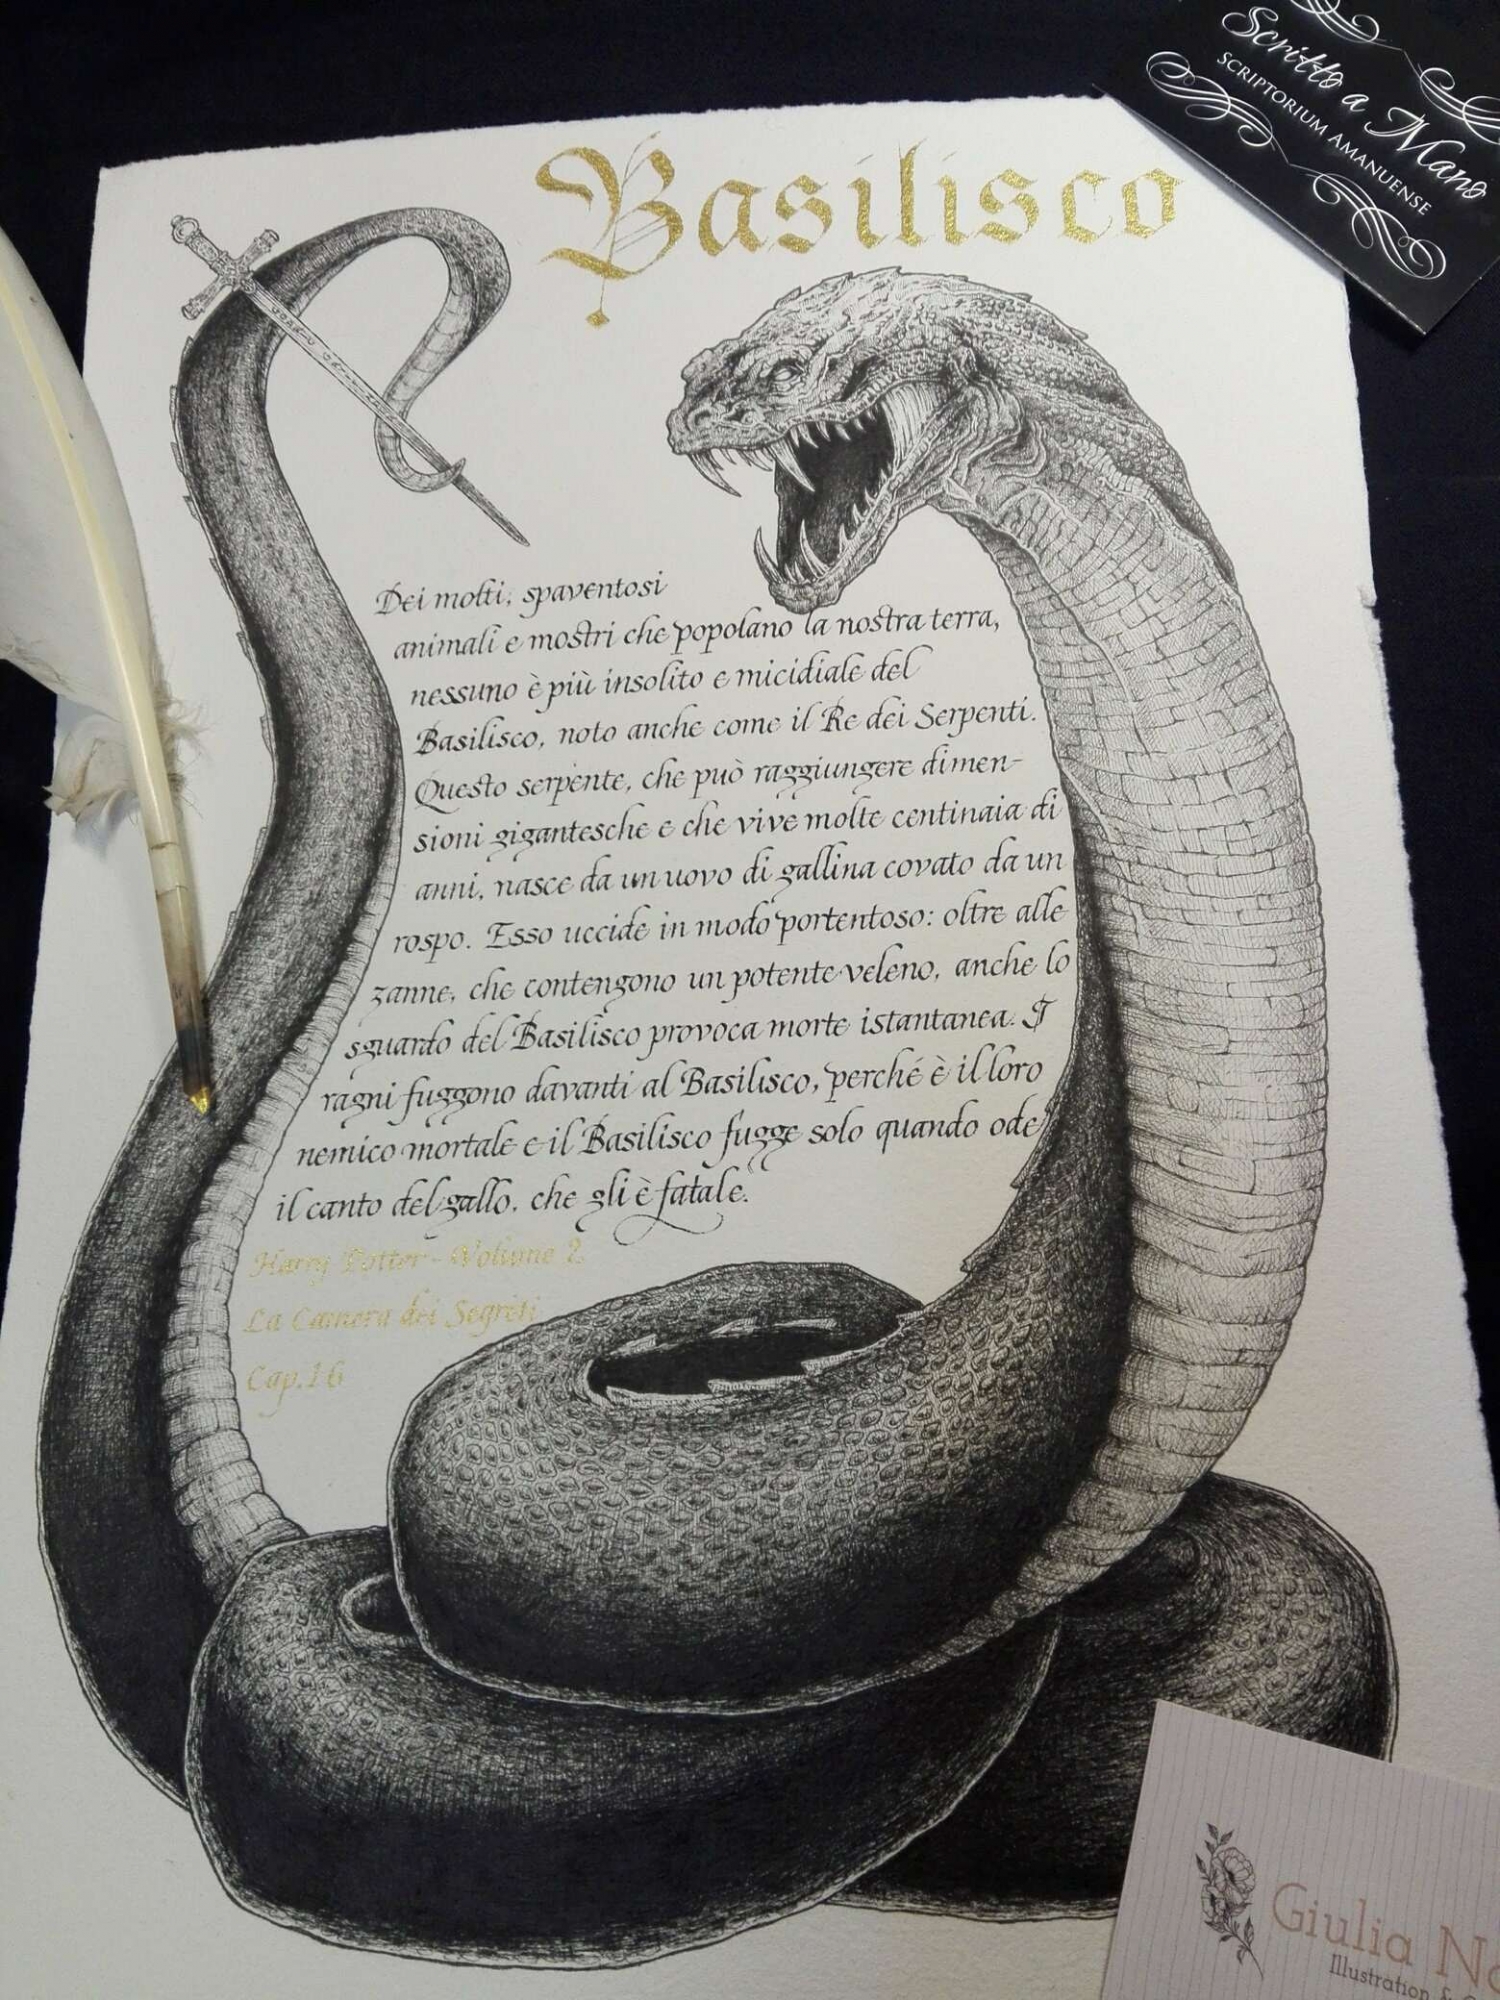 Scritto a Mano
SCRIPTORIUM AMANUENSE
Basilisco
Dei molti, spaventosi
animali e mostri che popolano la nostra terra,
nessuno è più insolito e micidiale del
Basilisco, noto anche come il Re dei Serpenti.
Questo serpente, che può raggiungere dimen-
sioni gigantesche e che vive molte centinaia di
anni, nasce da un uovo di gallina covato da un
rospo. Esso uccide in modo portentoso: oltre alle
zanne, che contengono un potente veleno, anche lo
sguardo del Basilisco provoca morte istantanea. I
ragni fuggono davanti al Basilisco, perché è il loro
nemico mortale e il Basilisco fugge solo quando ode
il canto del gallo, che gli è fatale.
Harry Potter - Volume 2
La Camera dei Segreti
Cap.16
Giulia
Illustration &